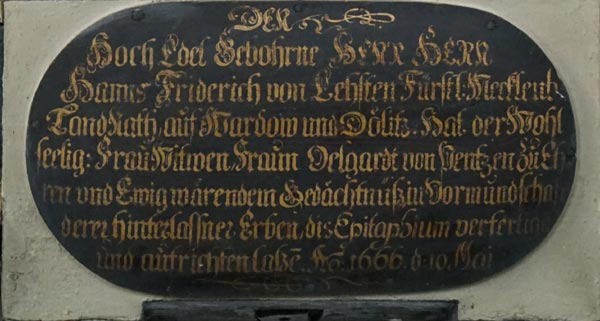 DER
Hoch Edel Gebohrne HERR HERR
Hanns Friderich von Lehsten Fürstl: Mecklenb.
Land Rath, auf Wardow und Dölitz. Hat der Wohl
seelig: Frau Witwen, Fraun Oelgardt von Pentzen Zu Eh
ren und Ewig wärendem Gedächtnüß in Vormundschaf
derer hinterlassner Erben, dis Epitaphium verfertig
und aufrichten laßẽ. Aõ. 1666. d. 10. Mai